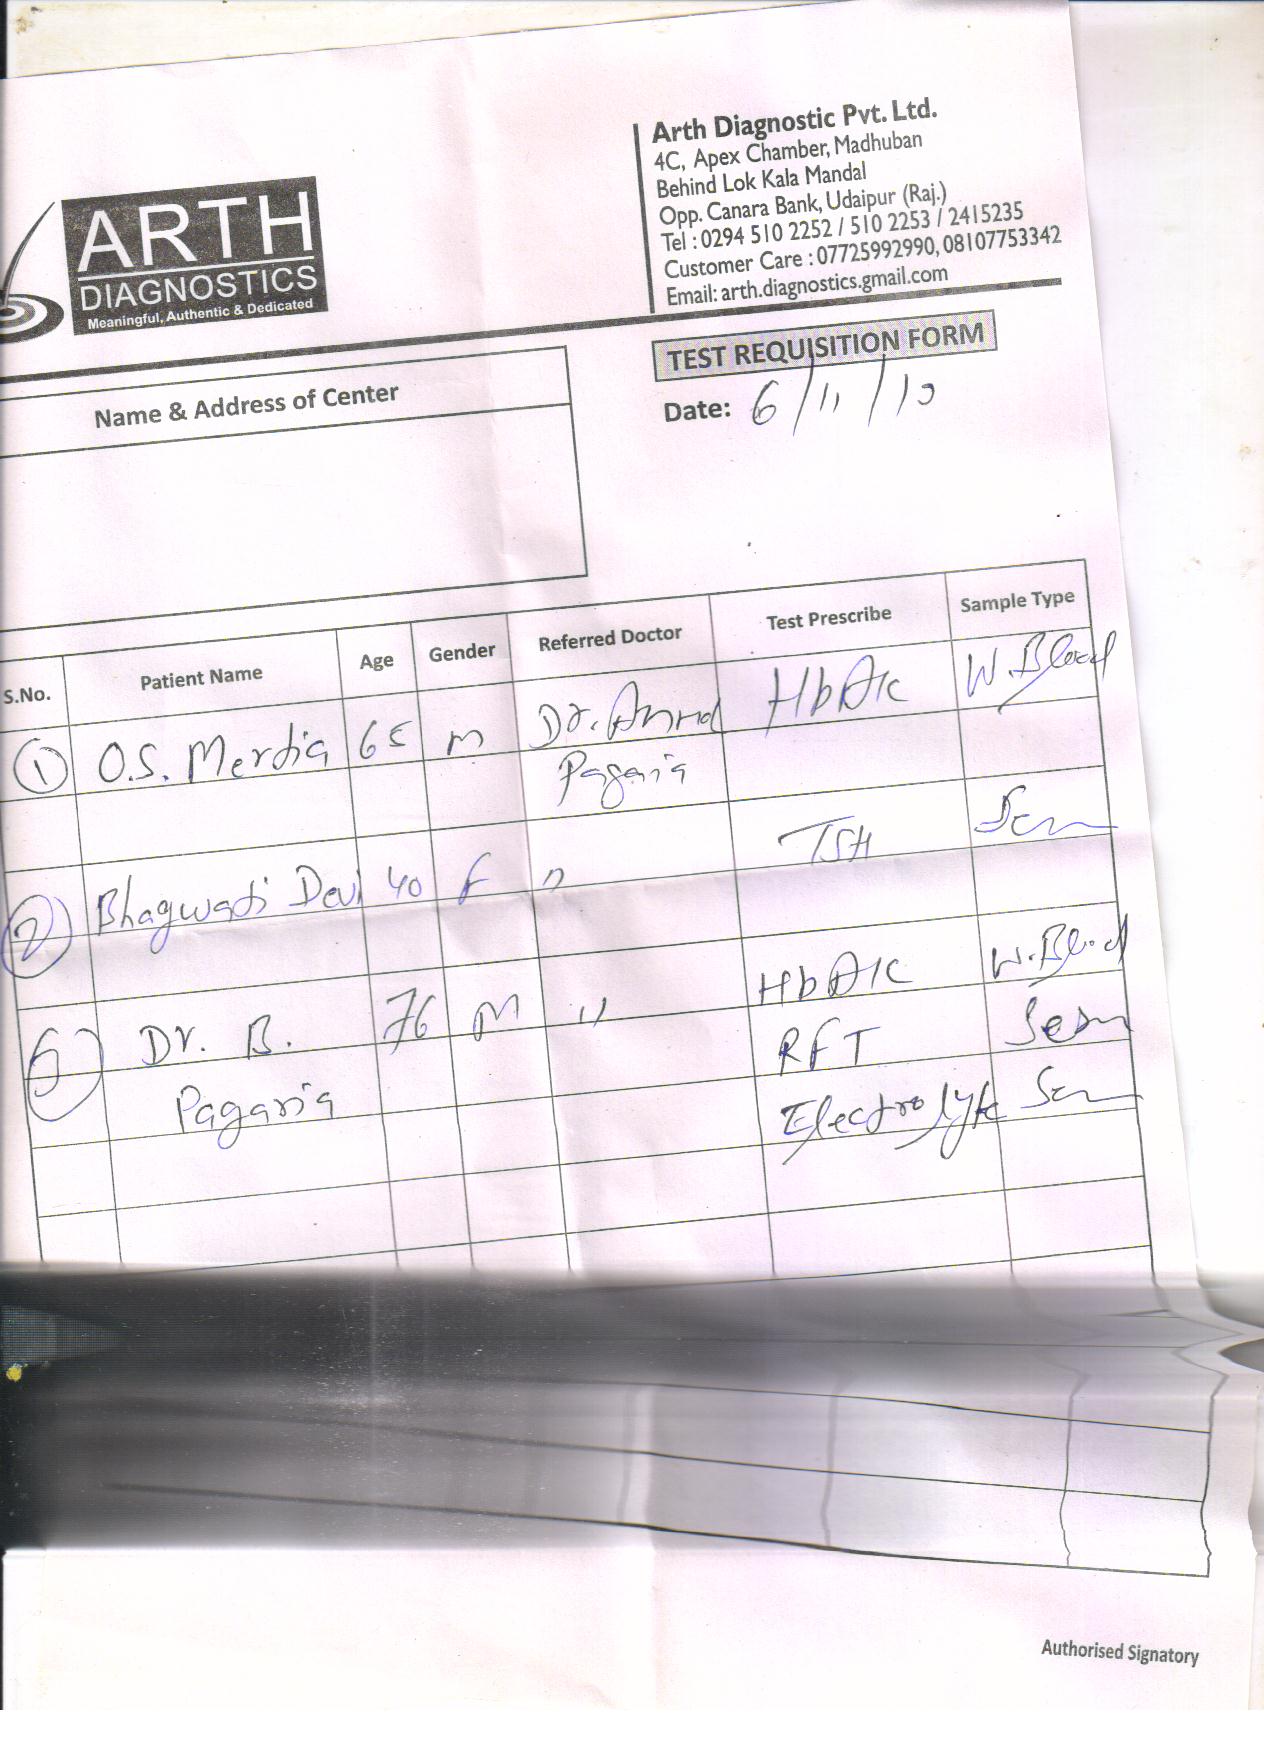 Arth Diagnostic Pvt. Ltd.
4C, Apex Chamber, Madhuban
Behind Lok Kala Mandal
Opp. Canara Bank, Udaipur (Raj.)
Tel : 0294 510 2252 / 510 2253 / 2415235
Customer Care : 07725992990, 08107753342
Email: arth.diagnostics.gmail.com
ARTH
DIAGNOSTICS
Meaningful, Authentic & Dedicated
TEST REQUISITION FORM
Name & Address of Center
Date: 6/11/
S.No. Patient Name Age Gender Referred Doctor Test Prescribe Sample Type
1 O.S. Merdia 65 m Dr. HbA1c W. Blood
Pagaria
2 Bhagwati Devi 40 f " TSH
Dr. B. 76 M " HbA1c W. Blood
Pagaria RFT
Electrolyte
Authorised Signatory